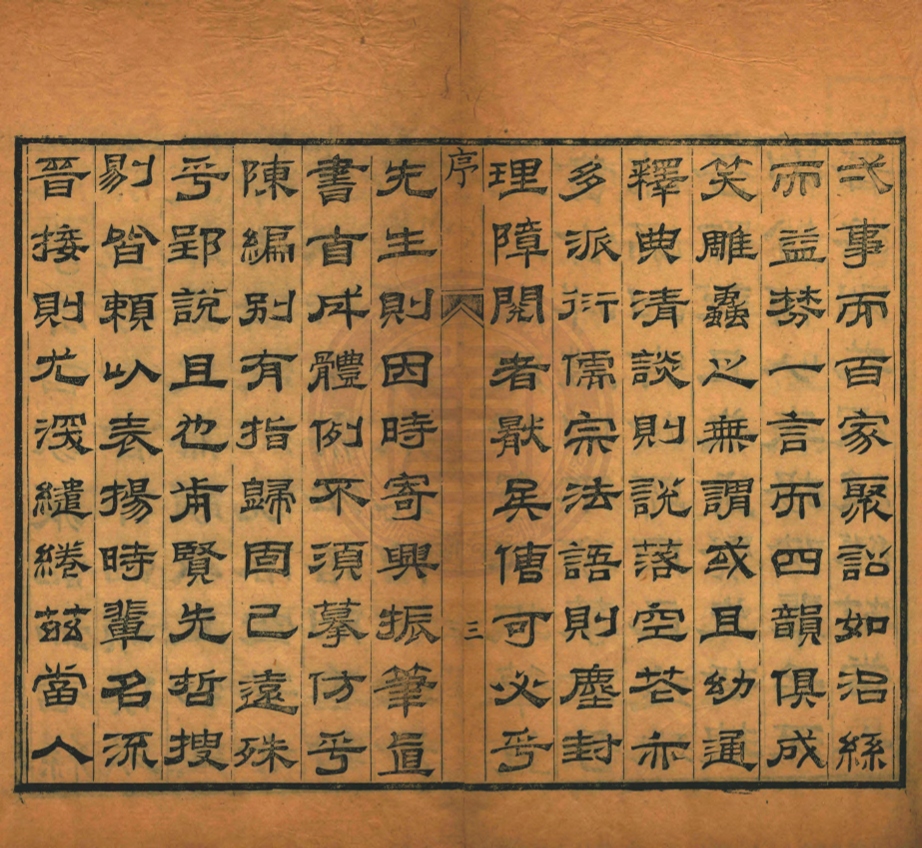 事而百家聚訟如治絲
而益棼一言而四韻俱成
笑雕蟲之無謂或且幼通
釋典清談則說落空花亦
多派衍儒宗法語則塵封
理障閱者厭矣傳可必乎
序 三
先生則因時寄興振筆直
書自成體例不須摹仿乎
陳編別有指歸固已遠殊
乎郢說且也前賢先哲搜
剔皆賴以表揚時輩名流
晉接則尤深繾綣茲當人